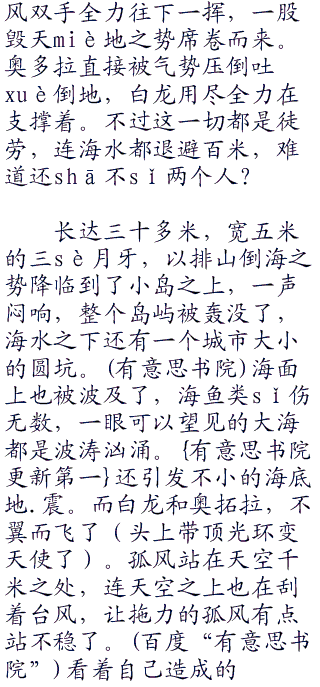 风双手全力往下一挥，一股
毁天miè地之势席卷而来。
奥多拉直接被气势压倒吐
xuè倒地，白龙用尽全力在
支撑着。不过这一切都是徒
劳，连海水都退避百米，难
道还shā不sǐ两个人？
长达三十多米，宽五米
的三sè月牙，以排山倒海之
势降临到了小岛之上，一声
闷响，整个岛屿被轰没了，
海水之下还有一个城市大小
的圆坑。(有意思书院)海面
上也被波及了，海鱼类sǐ伤
无数，一眼可以望见的大海
都是波涛汹涌。{有意思书院
更新第一}还引发不小的海底
地.震。而白龙和奥拓拉，不
翼而飞了（头上带顶光环变
天使了）。孤风站在天空千
米之处，连天空之上也在刮
着台风，让拖力的孤风有点
站不稳了。(百度“有意思书
院”)看着自己造成的